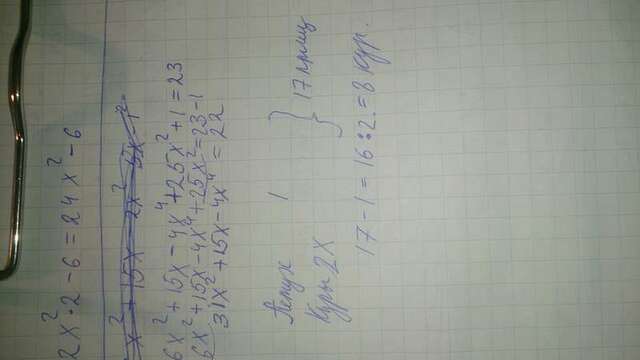 2x²·2-6=24x²-6
6x²+15x-4x⁴+25x²+1=23
6x²+15x-4x⁴+25x²=23-1
31x²+15x-4x⁴=22
Петух 1
Куры 2x
} 17 птиц
17-1=16:2=8 кур.